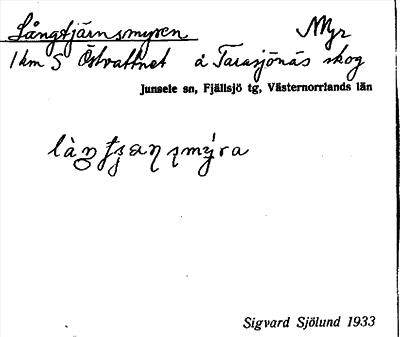 Långtjärnsmyren Myr
1 km S Östvattnet å Tarasjönäs skog
Junsele sn, Fjällsjö tg, Västernorrlands län
Sigvard Sjölund 1933